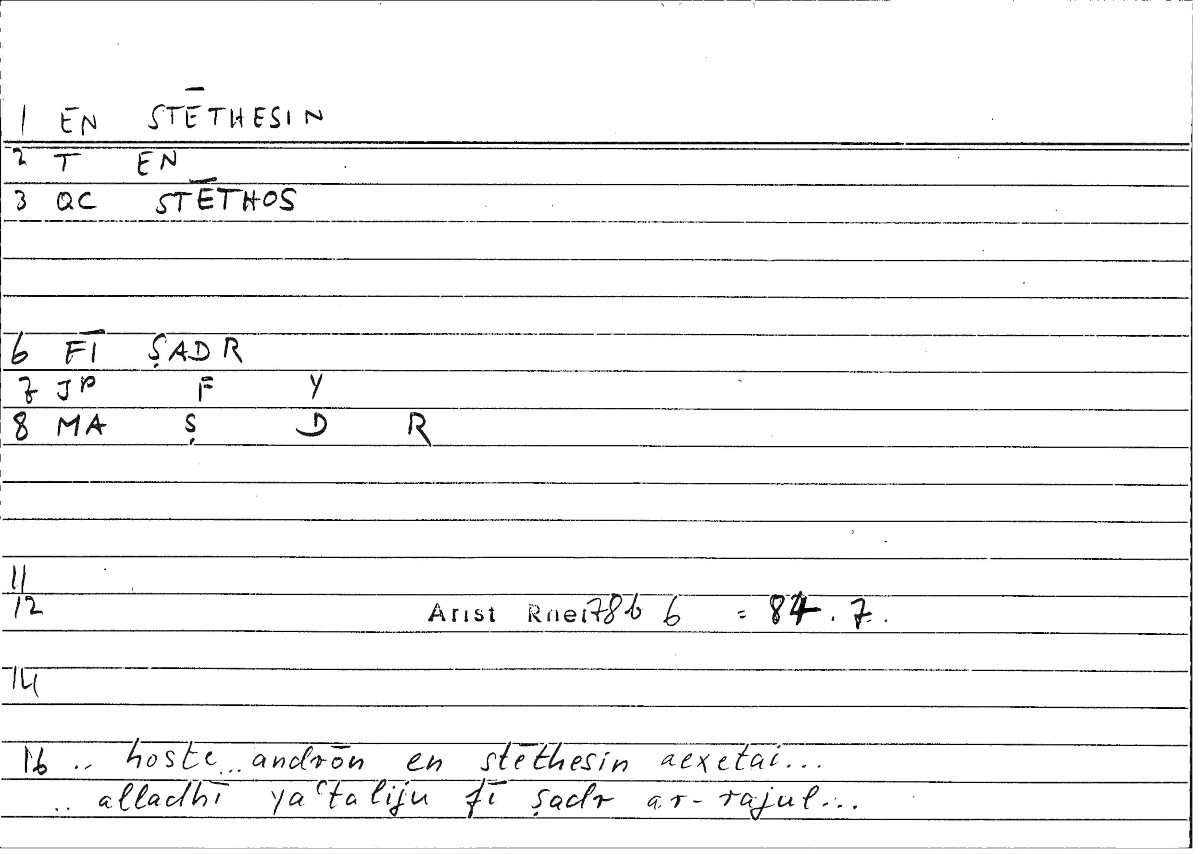 1 EN STĒTHESIN
2 T EN
3 QC STĒTHOS
6 FĪ ṢADR
7 JP F Y
8 MA Ṣ D R
11
12 Arist Rhet 78b 6 = 84.7.
14
16 .. hoste... andrōn en stēthesin aexetai...
.. alladhī yaʿtaliju fī ṣadr ar-rajul...